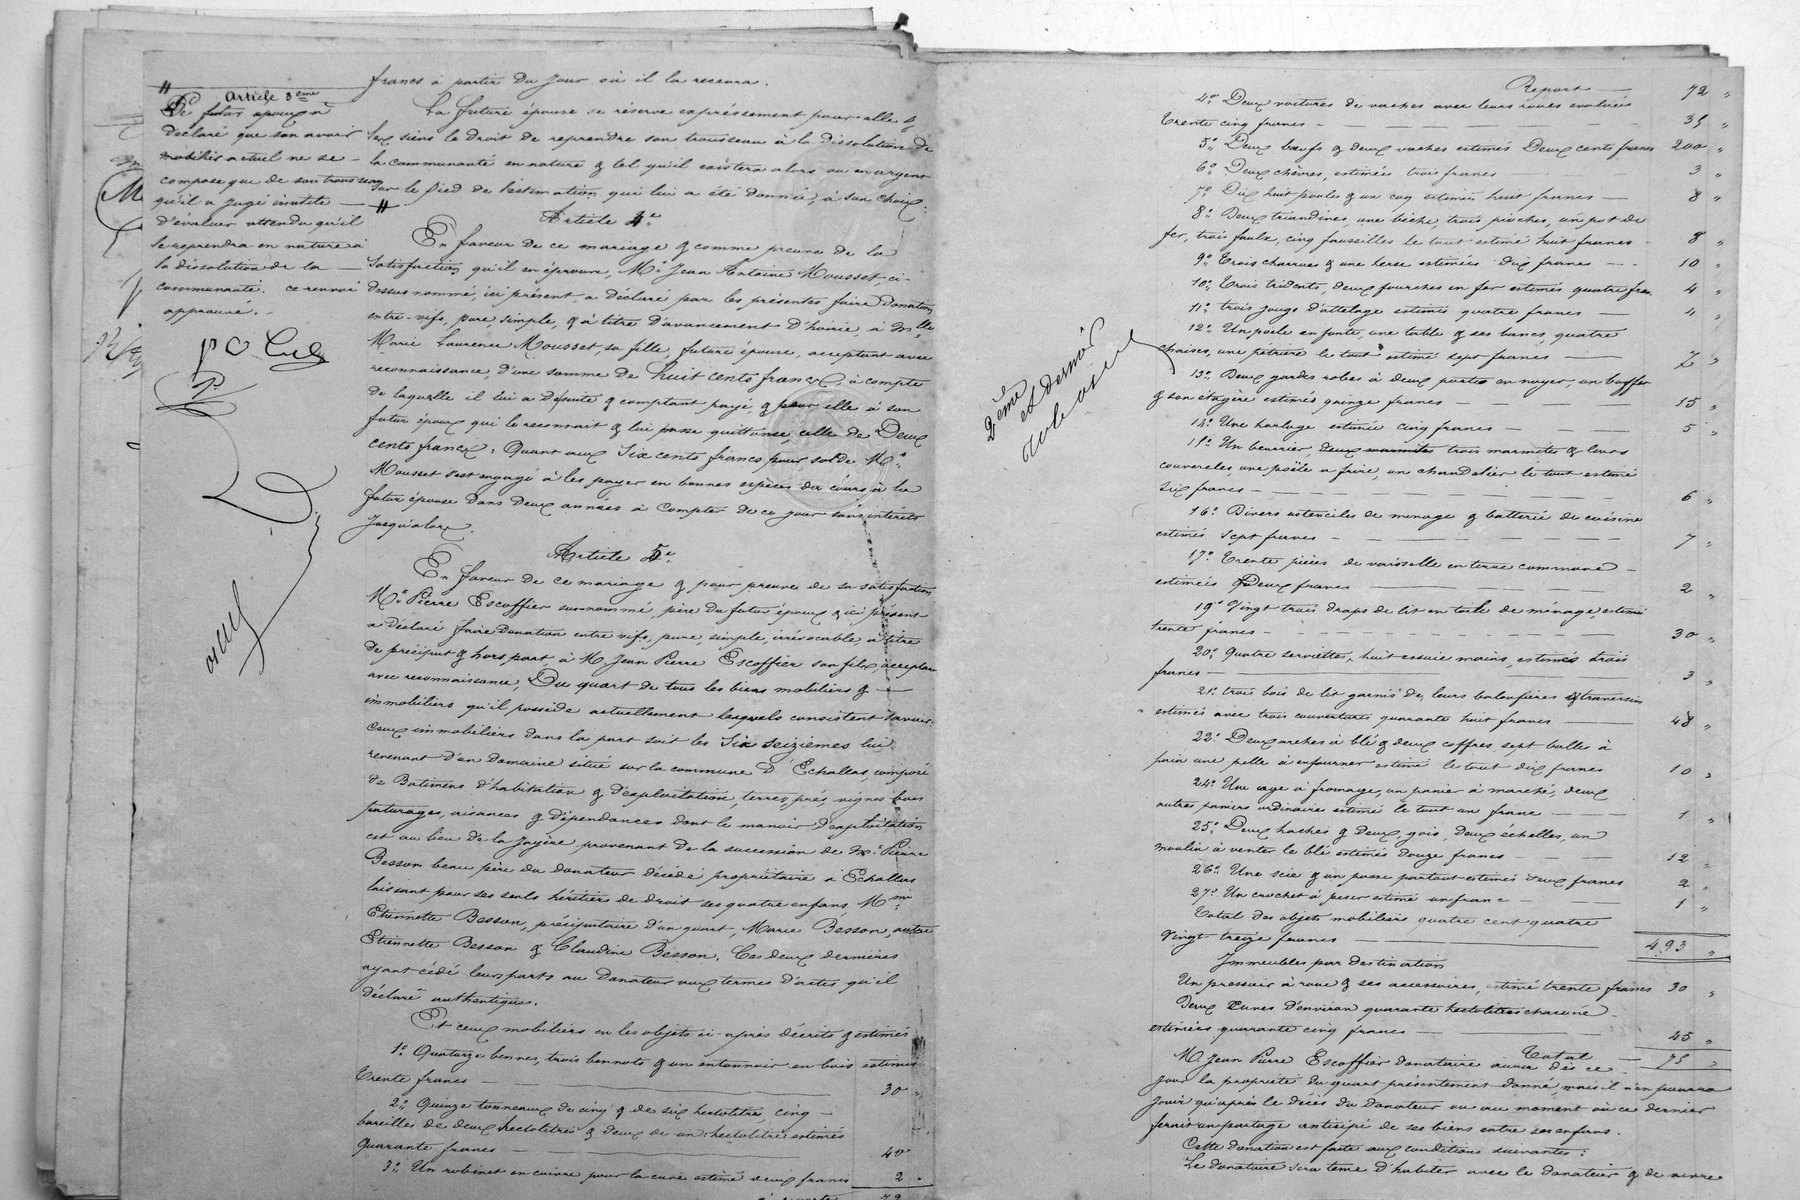 francs à partir du jour où il la recevra.
La future épouse se réserve expressément pour elle &
les siens le droit de reprendre son trousseau à la dissolution de
la communauté en nature & tel qu'il existera alors ou en argent
sur le pied de l'estimation qui lui a été donnée, à son choix.
"
Article 3ème
Le futur époux a
déclaré que son avoir
mobilier actuel ne se
compose que de son trousseau
qu'il a jugé inutile
d'évaluer attendu qu'il
le reprendra en nature à
la dissolution de la
communauté. ce renvoi
approuvé.
Article 4e
En faveur de ce mariage & comme preuve de la
satisfaction qu'il en éprouve, Mr Jean Antoine Mousset, ci-
dessus nommé, ici présent, a déclaré par les présentes faire donation
entre-vifs, pure, simple, & à titre d'avancement d'hoirie à Mlle
Marie Laurence Mousset, sa fille, future épouse, acceptant avec
reconnaissance, d'une somme de huit cents francs, à compte
de laquelle il lui a de suite & comptant payé, & pour elle à son
futur époux qui le reconnait & lui passe quittance, celle de Deux
cents francs; Quant aux Six cents francs pour solde Mr
Mousset s'est engagé à les payer en bonnes espèces du cours à la
future épouse dans deux années à compter de ce jour sans intérêts
jusqu'alors.
Article 5e
En faveur de ce mariage & pour preuve de sa satisfaction
Mr Pierre Escoffier susnommé, père du futur époux & ici présent
a déclaré faire donation entre vifs, pure, simple, irrévocable à titre
de préciput & hors part, à M. Jean Pierre Escoffier son fils, acceptant
avec reconnaissance, Du quart de tous les biens mobiliers &
immobiliers qu'il possède actuellement lesquels consistent savoir:
Ceux immobiliers dans la part soit les Six seizièmes lui
revenant d'un domaine situé sur la commune d'Echallas, composé
de Batimens d'habitation & d'exploitation, terres, prés, vignes, bois
paturages, aisances & dépendances dont le manoir d'exploitation
est au lieu de la Jayère provenant de la succession de Mr Pierre
Besson beau père du donateur décédé propriétaire à Echallas
laissant pour ses seuls héritiers de droit ses quatre enfans, Mme
Etiennette Besson, précipitaire d'un quart, Marie Besson, autre
Etiennette Besson & Claudine Besson. Ces deux dernières
ayant cédé leurs parts au Donateur aux termes d'actes qu'il
déclare authentiques.
Et ceux mobiliers en les objets ci-après décrits & estimés
1° Quatorze bennes, trois bennots & un entonnoir en bois estimés
trente francs — 30 "
2° Quinze tonneaux de cinq & de six hectolitres, cinq
bareilles de deux hectolitres & deux de un hectolitre estimés
quarante francs — 40
3° Un robinet en cuivre pour la cuve estimé deux francs 2 "
à reporter 72
Report — 72 "
4° Deux voitures de vaches avec leurs roues évaluées
trente cinq francs — 35 "
5° Deux bœufs & deux vaches estimés Deux cents francs 200 "
6° Deux chèvres, estimées trois francs 3 "
7° Dix huit poules & un coq estimés huit francs — 8 "
8° Deux triandines, une bèche, trois pioches, un pot de
fer, trois faulx, cinq faussilles le tout estimé huit francs 8 "
9° Trois charrues & une herse estimées dix francs — 10 "
10° Trois tridents, deux fourches en fer estimés quatre fran. 4 "
11° trois jougs d'attelage estimés quatre francs — 4 "
12° Un poele en fonte, une table & ses bancs, quatre
chaises, une pétrière le tout estimé sept francs — 7 "
13° Deux gardes robes à deux portes en noyer, un buffet
& son étagère estimés quinze francs — 15 "
14° Une horloge estimée cinq francs — 5 "
15° Un beurrier, deux marmites trois marmites & leurs
couvercles, une poële à frire, un chandelier le tout estimé
six francs — 6 "
16° Divers ustenciles de ménage & batterie de cuisine
estimés sept francs — 7 "
17° Trente pièces de vaisselle en terre commune
estimées Deux francs — 2 "
19° Vingt trois draps de lit en toile de ménage, estimés
trente francs — 30 "
20° Quatre serviettes, huit essuie mains, estimés trois
francs — 3 "
21° trois bois de lit garnis de leurs baloufières & traversins
estimés avec trois couvertures quarante huit francs — 48 "
22° Deux arches à blé & deux coffres, sept balles à
pain une pelle à enfourner estimé le tout dix francs 10 "
24° Une cage à fromage, un panier à marché, deux
autres paniers ordinaires estimé le tout un franc — 1 "
25° Deux haches & deux gois, deux échelles, un
moulin à venter le blé estimés douze francs — 12 "
26° Une scie & un passe partout estimés deux francs 2 "
27° Un crochet à peser estimé un franc — 1 "
Total des objets mobiliers quatre cent quatre
vingt treize francs — 493 "
Immeubles par destination
Un pressoir à roue & ses accessoires, estimé trente francs 30 "
Deux Cuves d'environ quarante hectolitres chacune
estimées quarante cinq francs — 45 "
Total — 75 "
M. Jean Pierre Escoffier donataire aura dès ce
jour la propriété du quart présentement donné, mais il n'en pourra
jouir qu'après le décès du donateur ou au moment où ce dernier
ferait un partage anticipé de ses biens entre ses enfans.
Cette donation est faite aux conditions suivantes:
Le donataire sera tenu d'habiter avec le donateur & de vivre
2ème
et dernier
rôle